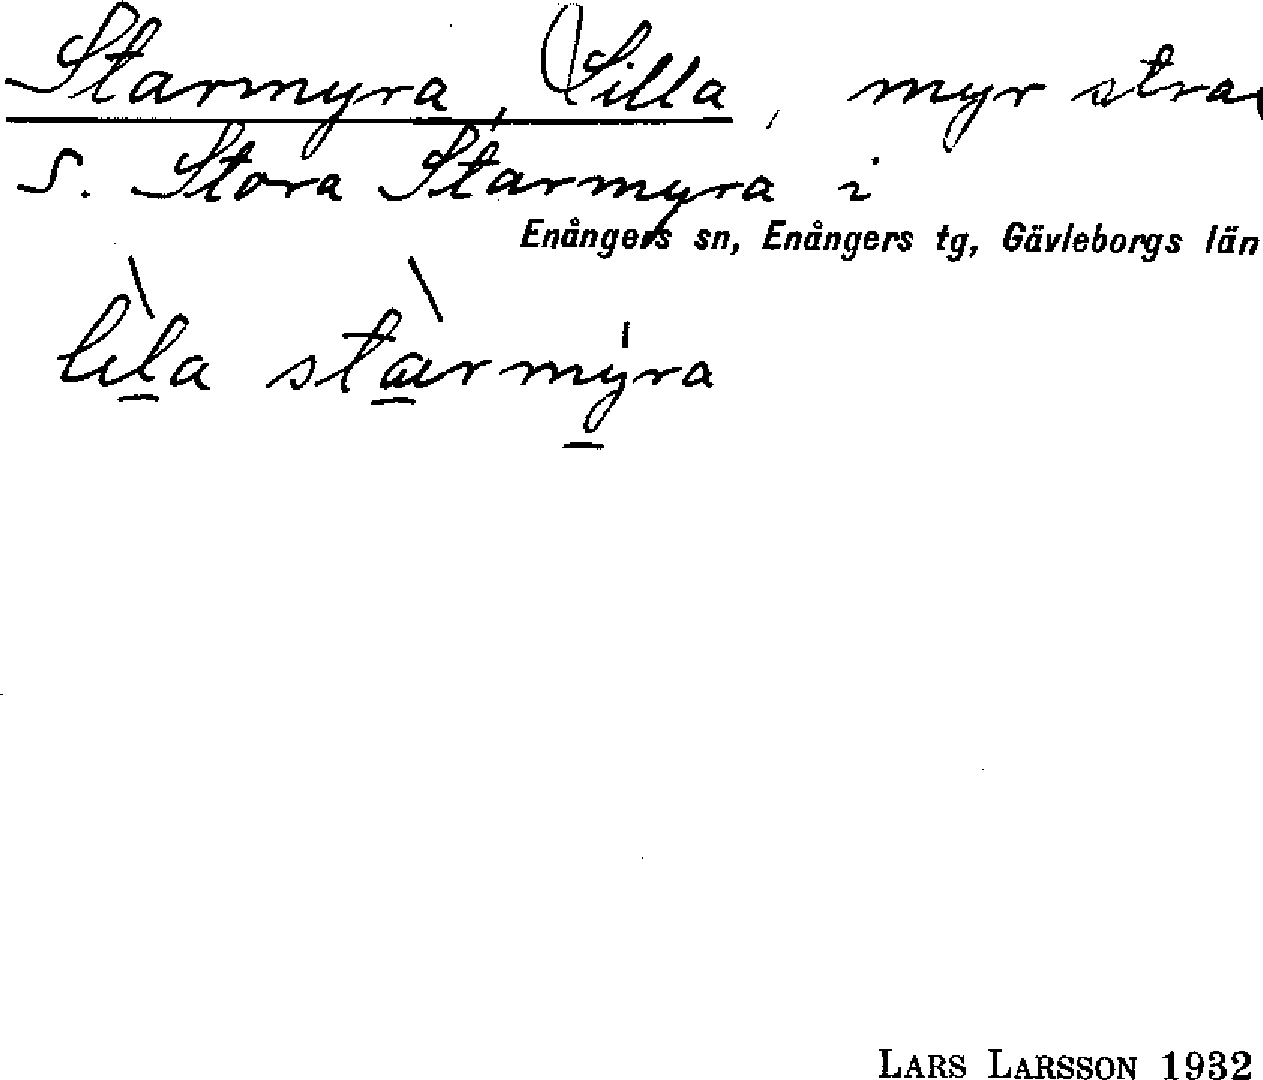 Starmyra, Lilla, myr strax
S. Stora Starmyra i
Enångers sn, Enångers tg, Gävleborgs län
lìla stàrmyra
LARS LARSSON 1932